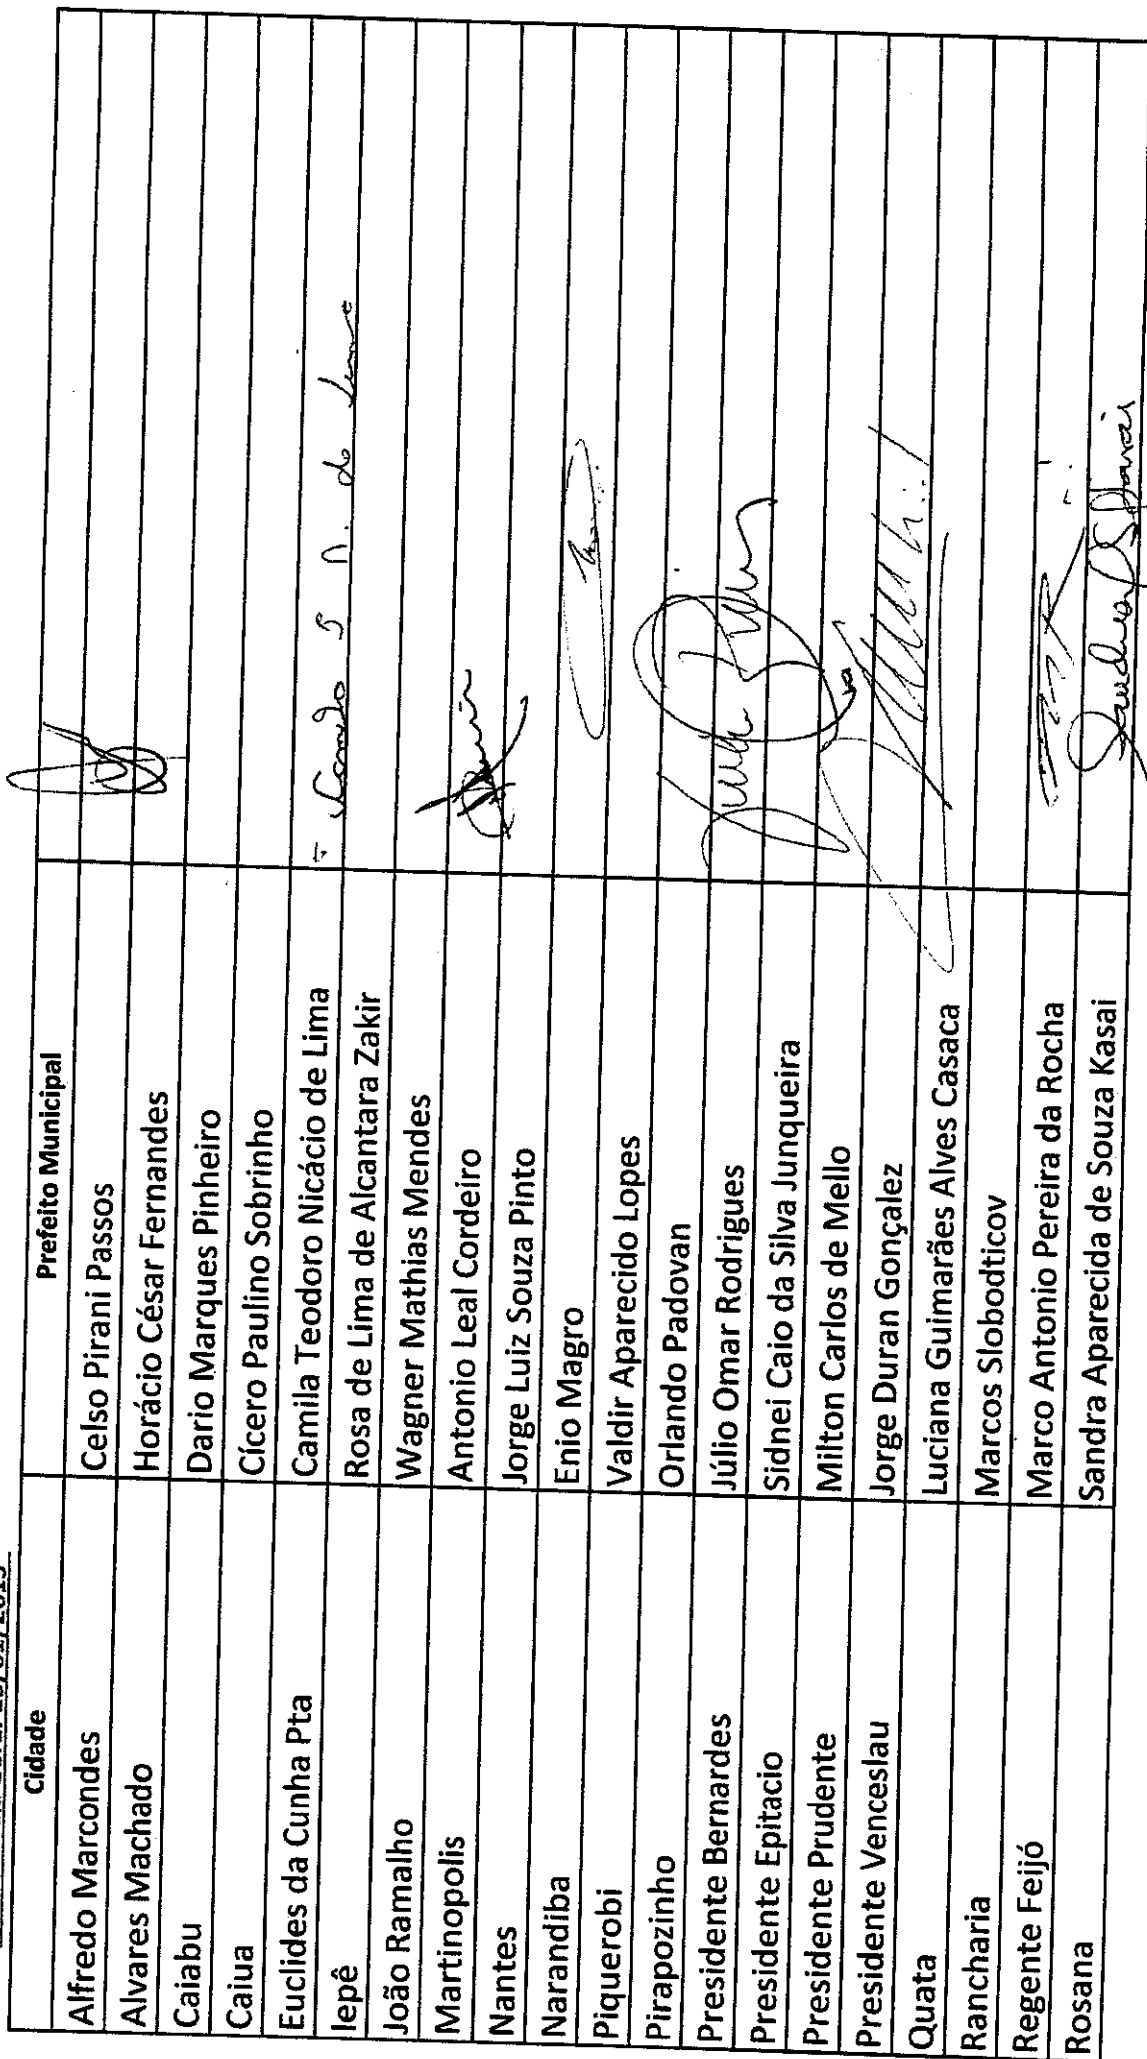 Cidade Prefeito Municipal
Alfredo Marcondes Celso Pirani Passos
Alvares Machado Horácio César Fernandes
Caiabu Dario Marques Pinheiro
Caiua Cícero Paulino Sobrinho
Euclides da Cunha Pta Camila Teodoro Nicácio de Lima
Iepê Rosa de Lima de Alcantara Zakir
João Ramalho Wagner Mathias Mendes
Martinopolis Antonio Leal Cordeiro
Nantes Jorge Luiz Souza Pinto
Narandiba Enio Magro
Piquerobi Valdir Aparecido Lopes
Pirapozinho Orlando Padovan
Presidente Bernardes Júlio Omar Rodrigues
Presidente Epitacio Sidnei Caio da Silva Junqueira
Presidente Prudente Milton Carlos de Mello
Presidente Venceslau Jorge Duran Gonçalez
Quata Luciana Guimarães Alves Casaca
Rancharia Marcos Slobodticov
Regente Feijó Marco Antonio Pereira da Rocha
Rosana Sandra Aparecida de Souza Kasai